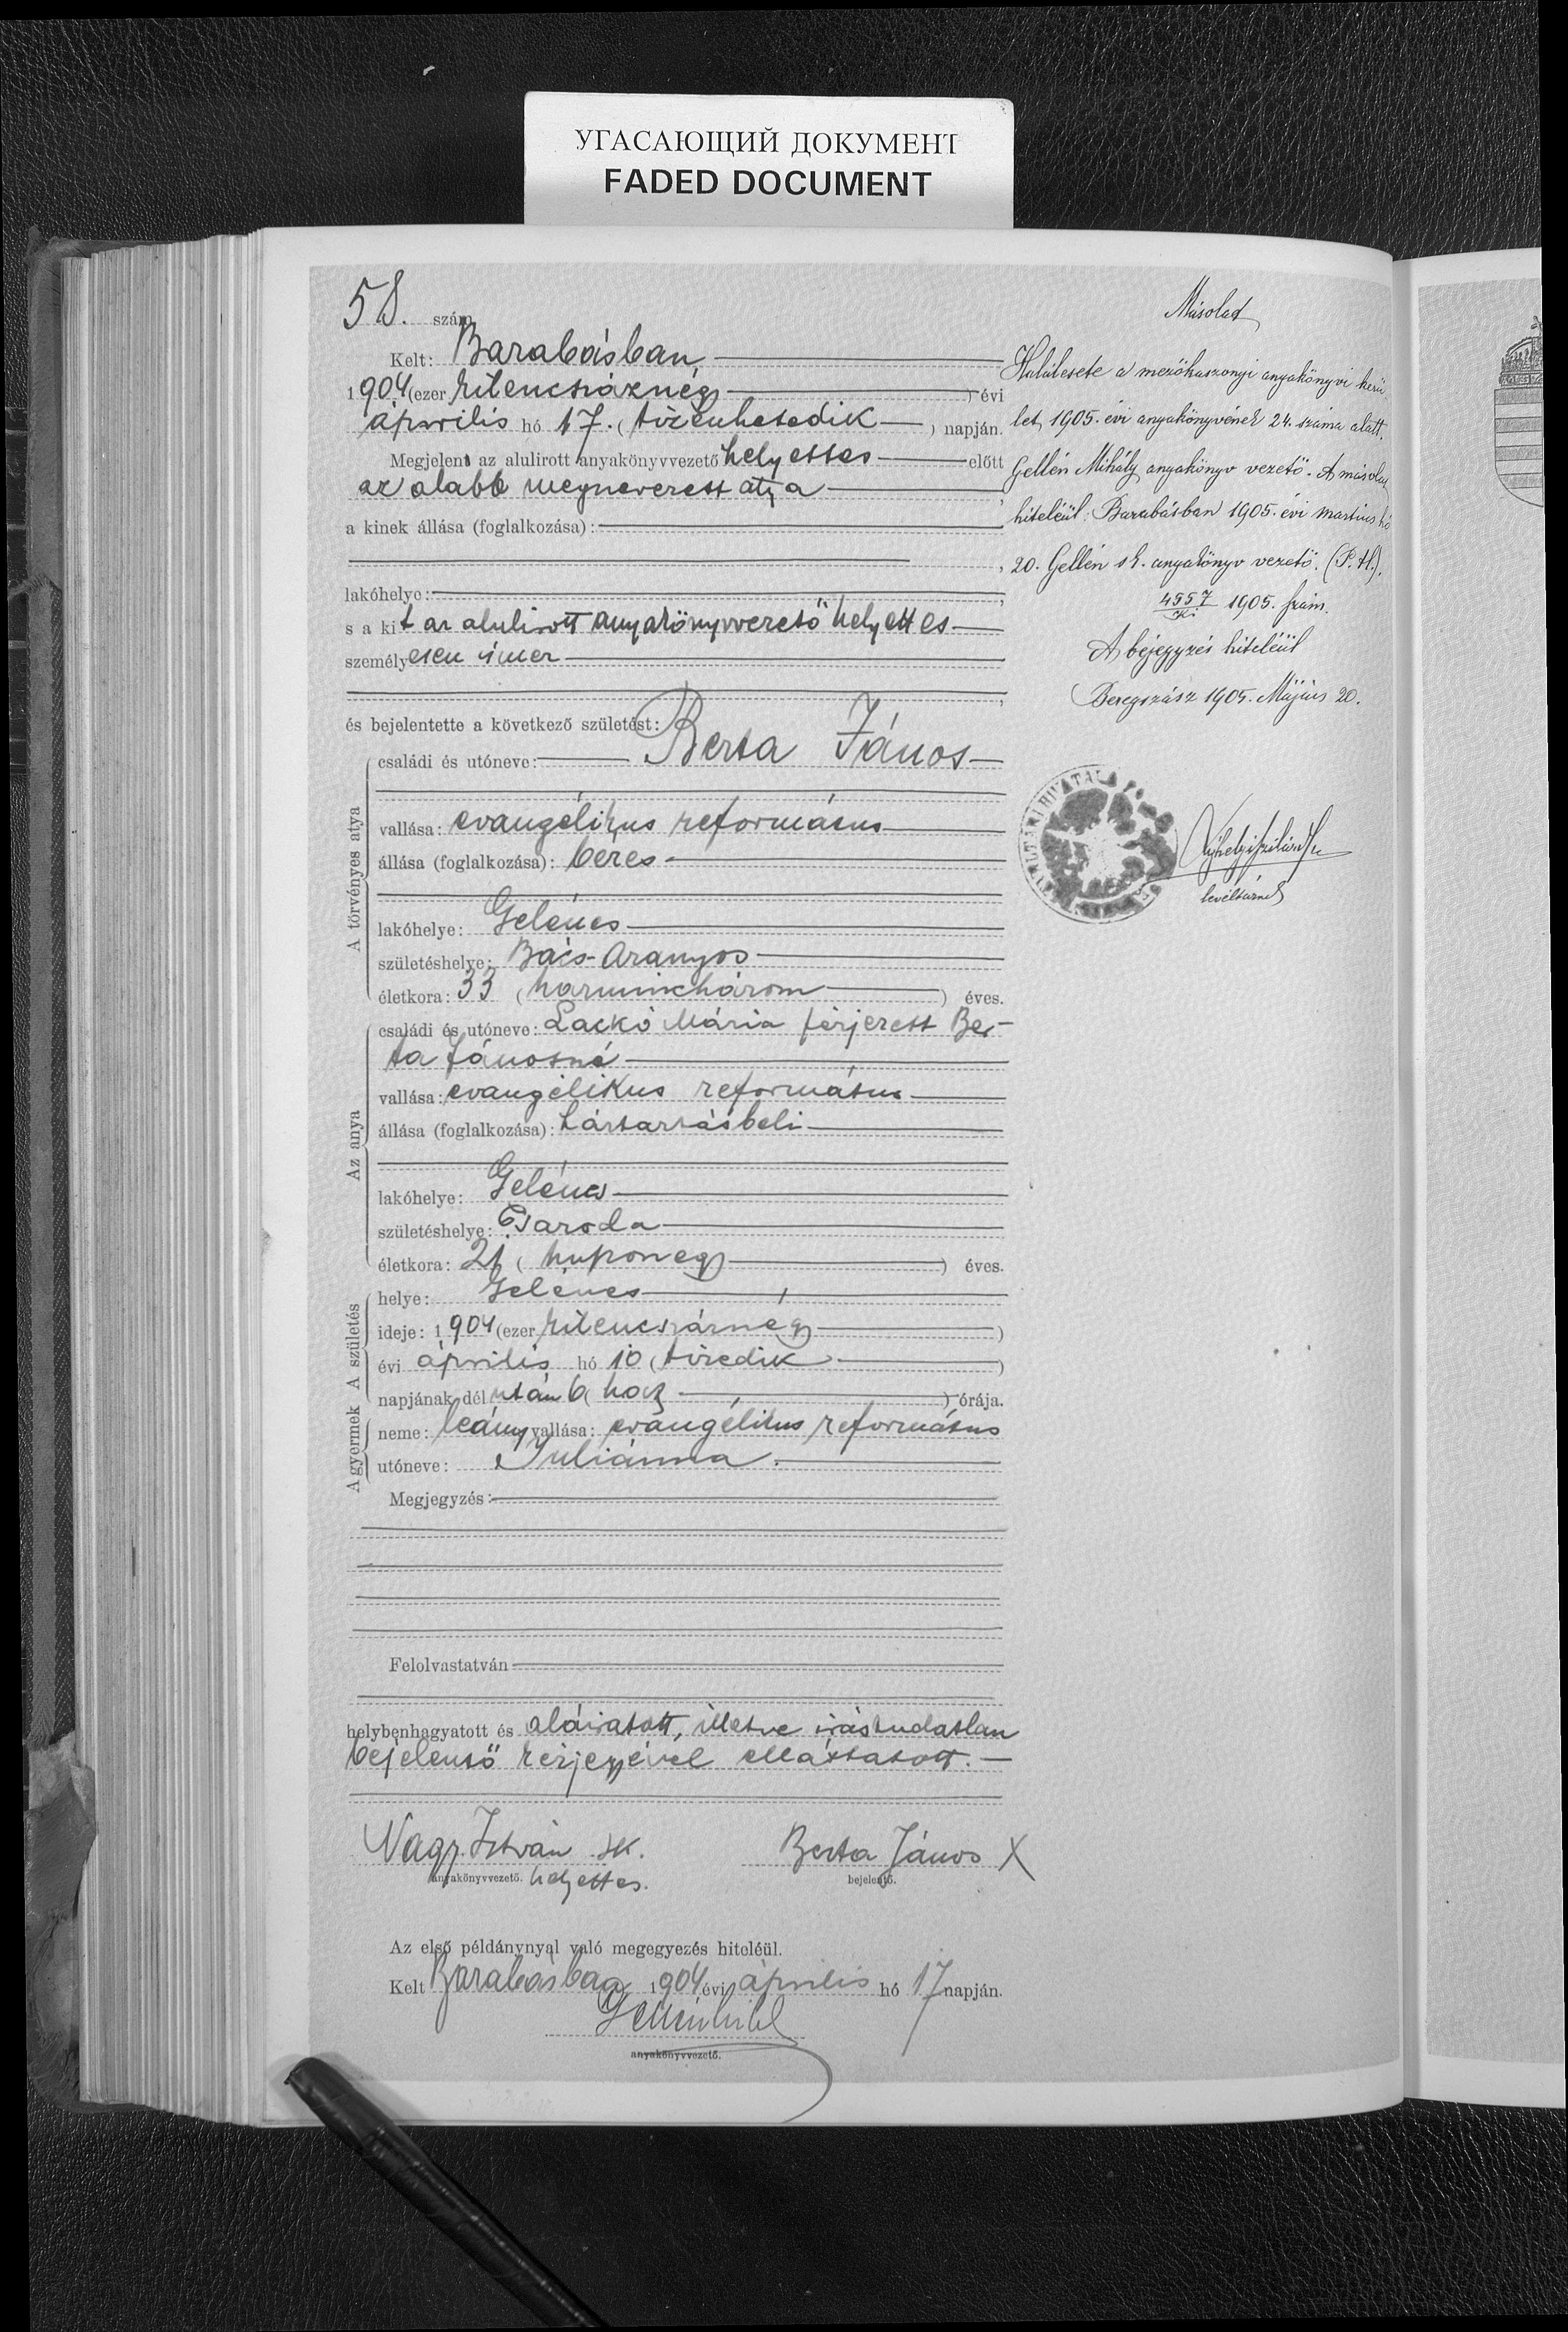 УГАСАЮЩИЙ ДОКУМЕНТ
FADED DOCUMENT
58. szám
Kelt: Barabásban,
1904 (ezer kilencszáznégy) évi
április hó 17. (tizenhetedik) napján.
Megjelent az alulirott anyakönyvvezető helyettes előtt
az alább megnevezett atya
a kinek állása (foglalkozása):
lakóhelye:
s a kit az alulirott anyakönyvvezető helyettes
személyesen ismer
és bejelentette a következő születést:
A törvényes atya
családi és utóneve: Berta János
vallása: evangélikus református
állása (foglalkozása): béres
lakóhelye: Gelénes
születéshelye: Bács-Aranyos
életkora: 33 (harminchárom) éves.
Az anya
családi és utóneve: Lackó Mária férjezett Ber-
ta Jánosné
vallása: evangélikus református
állása (foglalkozása): háztartásbeli
lakóhelye: Gelénes
születéshelye: Csaroda
életkora: 21 (huszonegy) éves.
A születés
helye: Gelénes
ideje: 1904 (ezer kilencszáznégy)
évi április hó 10 (tizedik)
napjának dél után 6 (hat) órája.
A gyermek
neme: leány vallása: evangélikus református
utóneve: Juliánna.
Megjegyzés:
Felolvastatván
helybenhagyatott és aláiratott, illetve irástudatlan
bejelentő kézjegyével elláttatott.
Nagy István sk.
anyakönyvvezető. helyettes.
Berta János X
bejelentő.
Az első példánynyal való megegyezés hiteléül.
Kelt Barabásban 1904 évi április hó 17 napján.
anyakönyvvezető.
Másolat
Halálesete a mezőkaszonyi anyakönyvi kerü-
let, 1905. évi anyakönyvének 24. száma alatt.
Gellén Mihály anyakönyv vezető. A másolat
hiteléül: Barabásban 1905. évi martius hó
20. Gellén sk. anyakönyv vezető. (P. H.).
4557/Ki 1905. szám.
A bejegyzés hiteléül
Beregszász 1905. Május 20.
levéltárnok